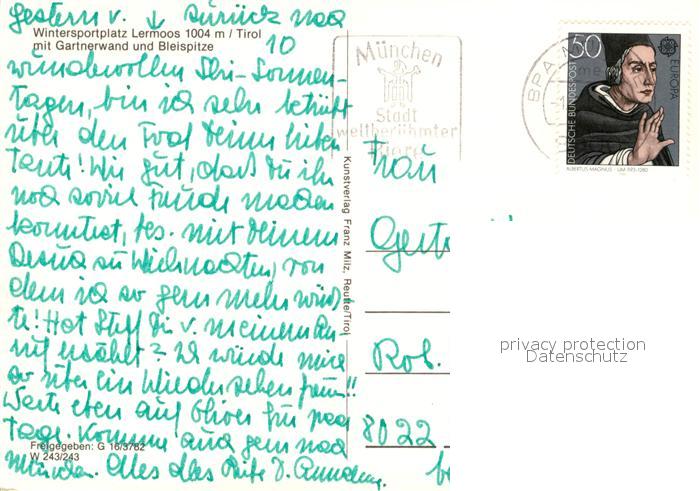 gestern v. ↓ zurück nach
Wintersportplatz Lermoos 1004 m / Tirol
mit Gartnerwand und Bleispitze
10
wundervollen Ski-Sonnen-
tagen, bin ich sehr betrübt
über den Tod Deiner lieben
Tante! Wie gut, daß Du ihr
noch soviel Freude machen
konntest, bes. mit Deinem
Besuch zu Weihnachten, von
dem ich so gern mehr wüß-
te! Hat Steff Dir v. meinem An-
ruf erzählt? Ich würde mich
so über ein Wiedersehen freuen!!
Warte eben auf Oliver für paar
Tage. Komme auch gern nach
Freigegeben: G 16/3762
W 243/243
München. Alles Alles D.
Kunstverlag Franz Milz, Reutte/Tirol
München
Stadt
weltberühmter
Biere
BPA
50
DEUTSCHE BUNDESPOST
EUROPA
ALBERTUS MAGNUS · UM 1193-1280
Frau
Rob.
8022
privacy protection
Datenschutz